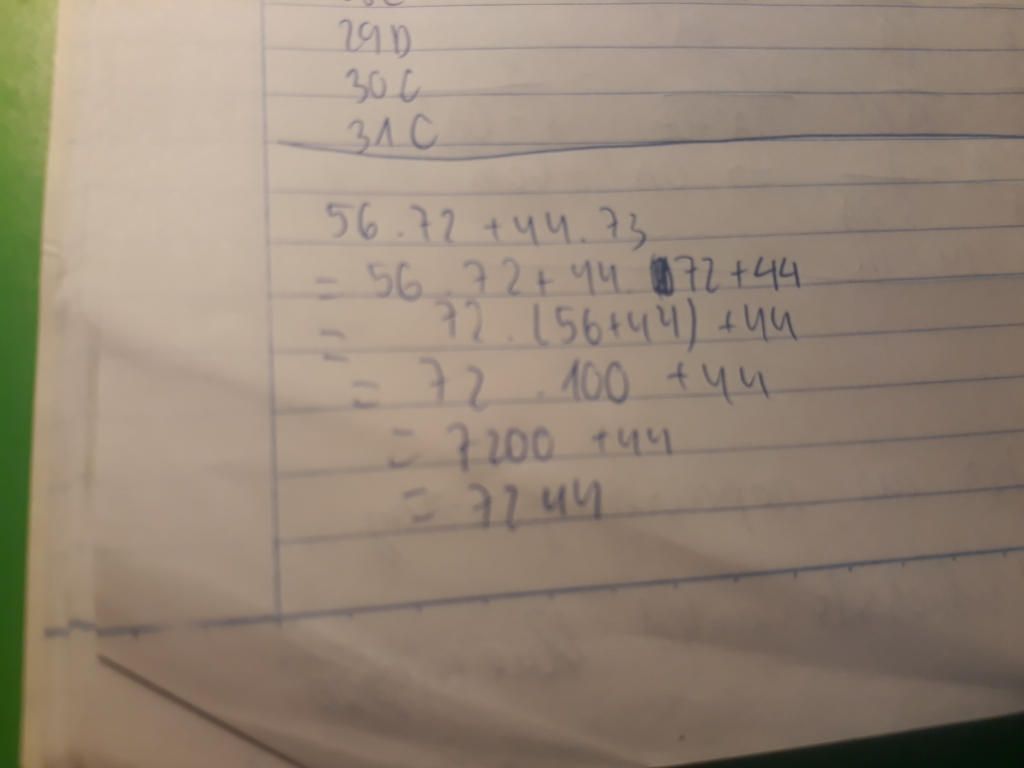 29 D
30 C
31 C
56 . 72 + 44 . 73
= 56 . 72 + 44 . 72 + 44
= 72 . (56 + 44) + 44
= 72 . 100 + 44
= 7200 + 44
= 7244